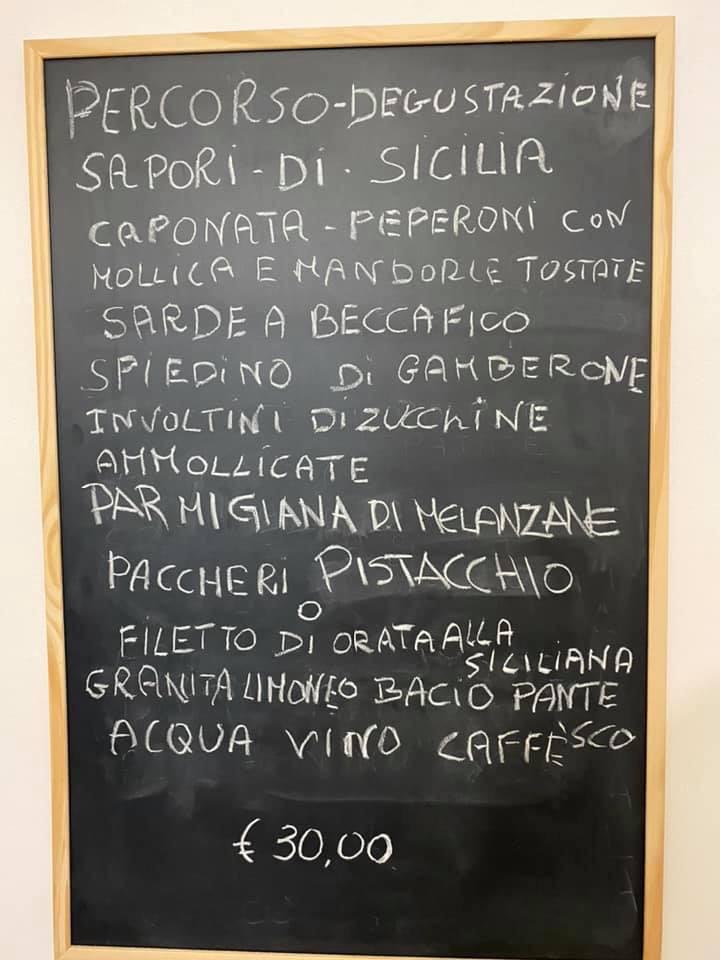 PERCORSO-DEGUSTAZIONE
SAPORI-DI·SICILIA
CAPONATA-PEPERONI CON
MOLLICA E MANDORLE TOSTATE
SARDE A BECCAFICO
SPIEDINO Di GAMBERONE
INVOLTINI DI ZUCCHINE
AMMOLLICATE
PARMIGIANA DI MELANZANE
PACCHERI PISTACCHIO
O
FILETTO DI ORATA ALLA
SICILIANA
GRANITA LIMONE O BACIO PANTE
SCO
ACQUA VINO CAFFÈ
€ 30,00